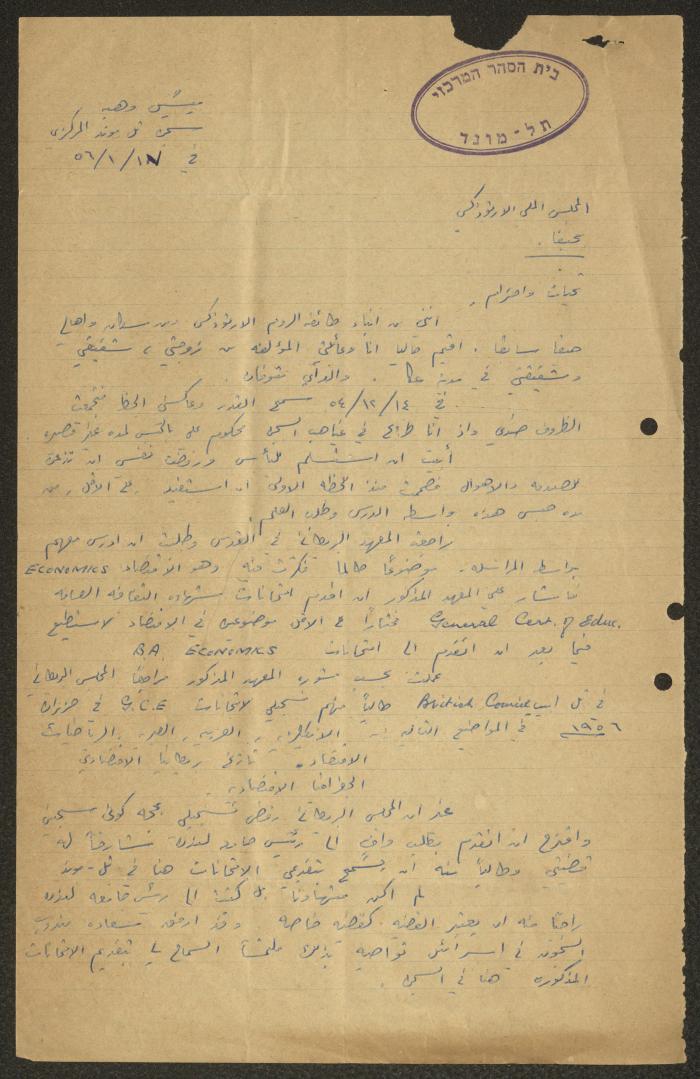 בית הסהר המרכזי
תל-מונד
ميشيل وهبه
سجن تل موند المركزي
في ١٨/١/٥٦
المجلس الملي الارثوذكسي
بحيفا .
تحيات واحترام ،
انني من ابناء طائفة الروم الارثوذكس ومن سكان واهالي
حيفا سابقا . اقيم حاليا انا وعائلتي المؤلفه من زوجتي ، شقيقي
وشقيقتي في مدينة عكا . والداي متوفيان .
في ١٤/١٢/٥٤ سمح القدر وعاكسني الحظ فتجمعت
الظروف ضدي واذ انا طريح في غياهب السجن محكوم علي بالحبس لمده غير قصيره
أبيت ان استسلم لليأس ورفضت نفسي ان تذعن
للصدمه والاهوال فصممت منذ اللحظه الاولى ان استفيد على الاقل من
مدة حبسي هذه بواسطة الدرس وطلب العلم .
راجعت المعهد البريطاني في القدس وطلبت ان ادرس معهم
بواسطة المراسله موضوعا طالما فكرت فيه وهو الاقتصاد ECONOMICS
فأشار علي المعهد المذكور ان اقدم امتحانات شهادة الثقافه العامه
General Cert. of Educ. مختارا على الاقل موضوعين في الاقتصاد لاستطيع
فيما بعد ان اتقدم الى امتحانات BA ECONOMICS
عملت بحسب مشورة المعهد المذكور مراجعا المجلس البريطاني
في تل ابيب British Council طالبا منهم تسجيلي لامتحانات G.C.E في حزيران
١٩٥٦ في المواضيع التاليه : الانكليزيه ، العربيه ، العبريه ، الرياضيات
الاقتصاد ، تاريخ بريطانيا الاقتصادي
الجغرافيا الاقتصاديه
غير ان المجلس البريطاني رفض تسجيلي بحجة كوني سجين
واقترح ان اتقدم بطلب وافٍ الى رئيس جامعة لندن شارحا له
قضيتي وطالبا منه ان يسمح بتقديمي الامتحانات هنا في تل-موند
لم اكن متهاونا بل كتبت الى رئيس جامعة لندن
راجيا منه ان يعتبر القضيه كقضيه خاصه وقد ارفق سعادة مندوب
السجون في اسرائيل توصيه بذلك ملتمسا السماح لي بتقديم الامتحانات
المذكوره هنا في السجن .